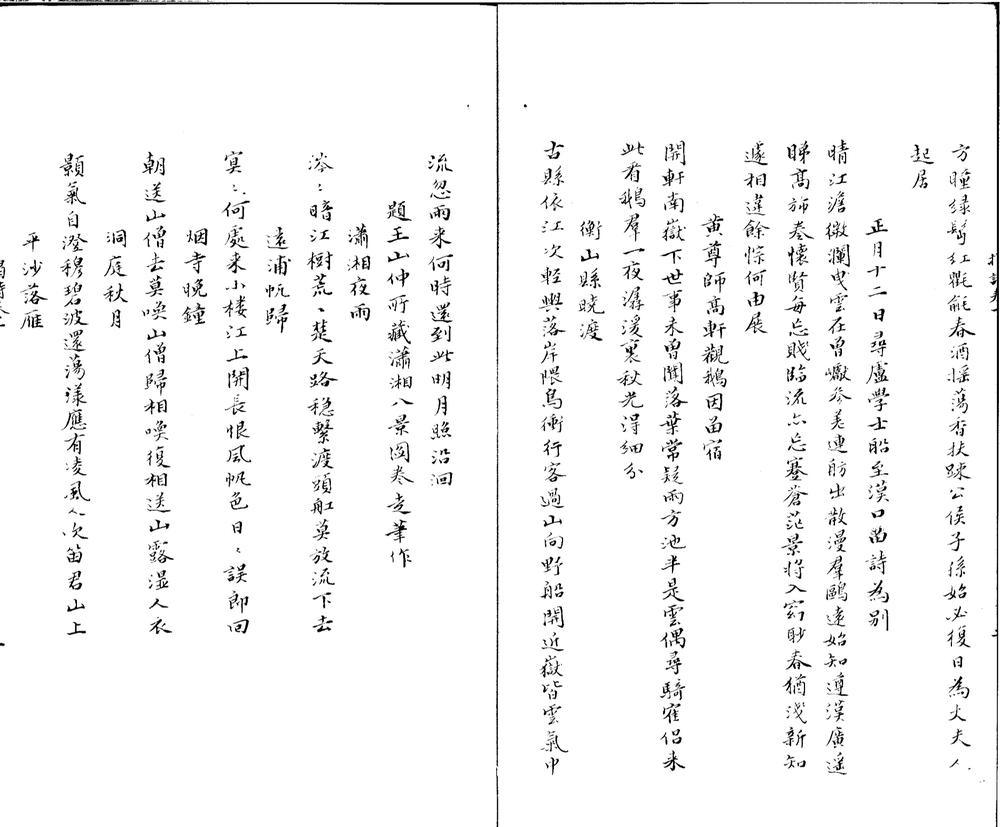 方瞳绿髩紅氍毹春酒摇蕩香扶踈公侯子孫始必復日為大夫人
起居
正月十二日尋盧學士船至漢口畱詩為别
晴江澹微瀾曳雲在曾巘参差連舫出散漫羣鷗遠始知遵漢廣遥
睇高斾卷懷賢每忘賤臨流亦忘蹇蒼茫景将入窈眇春猶浅新知
遽相違餘悰何由展
黄尊師高軒觀鵝因畱宿
開軒南嶽下世事未曾聞落葉常疑雨方池半是雲偶尋騎隺侣来
此看鵝羣一夜潺湲裏秋光淂細分
衡山縣曉渡
古縣依江次輕輿落岸隈鳥衝行客過山向野船開近嶽皆雲氣中
流忽雨来何時還到此明月照沿洄
題王山仲所藏瀟湘八景图卷走筆作
瀟湘夜雨
涔〻暗江樹荒〻楚天路穏繫渡頭舡莫放流下去
遠浦帆歸
冥〻何處来小楼江上開長恨風帆色日〻誤郎回
烟寺晚鐘
朝送山僧去莫唤山僧歸相喚復相送山露濕人衣
洞庭秋月
顥氣自澄穆碧波還蕩漾應有凌風人吹笛君山上
平沙落雁